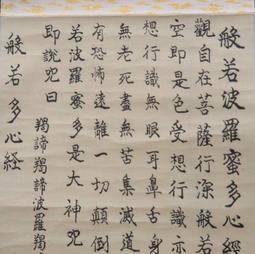 般若波羅蜜多心經
觀自在菩薩行深般若
空即是色受想行識亦
想行識無眼耳鼻舌身
無老死盡無苦集滅道
有恐怖遠離一切顛倒
若波羅蜜多是大神咒
即說咒曰 羯諦羯諦波羅羯
般若多心経